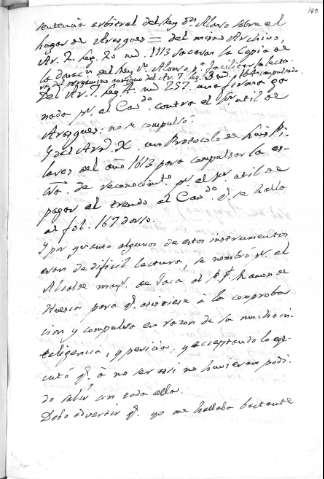 sentencia arbitral del Rey Dn. Alonso sobre el
lugar de Aragues = del mismo Archivo,
Ar. 2. leg. 20 nu. 1113 sacaron la Copia de
la del Rey Dn. Alonso pa. facilitar la lectu
Del Ar. 7. leg. 4. nu 257. una firma ga
nada pr. el Cavdo. contra el util de
Aragues: no se compulsó.
Y del Armo. X un Protocolo de
del año 1613 para compulsar la es
de reconocimto. pr. el util de
pagar el treudo al Cavdo. q. se halla
al fol. 167
Y por quanto algunos de estos instrumentos
eran de dificil lectura, se nombró pr. el
Alcalde mayr. de Jaca al P. F. Ramon de
Huesca para q. asistiese à la comproba
cion y compulsa en razon de su mucha in
teligencia, y pericia, y aceptando lo exe
cutó q. à no ser asi no huvieran podi
do salir con todo ello.
Debo advertir q. yo me hallaba bastante